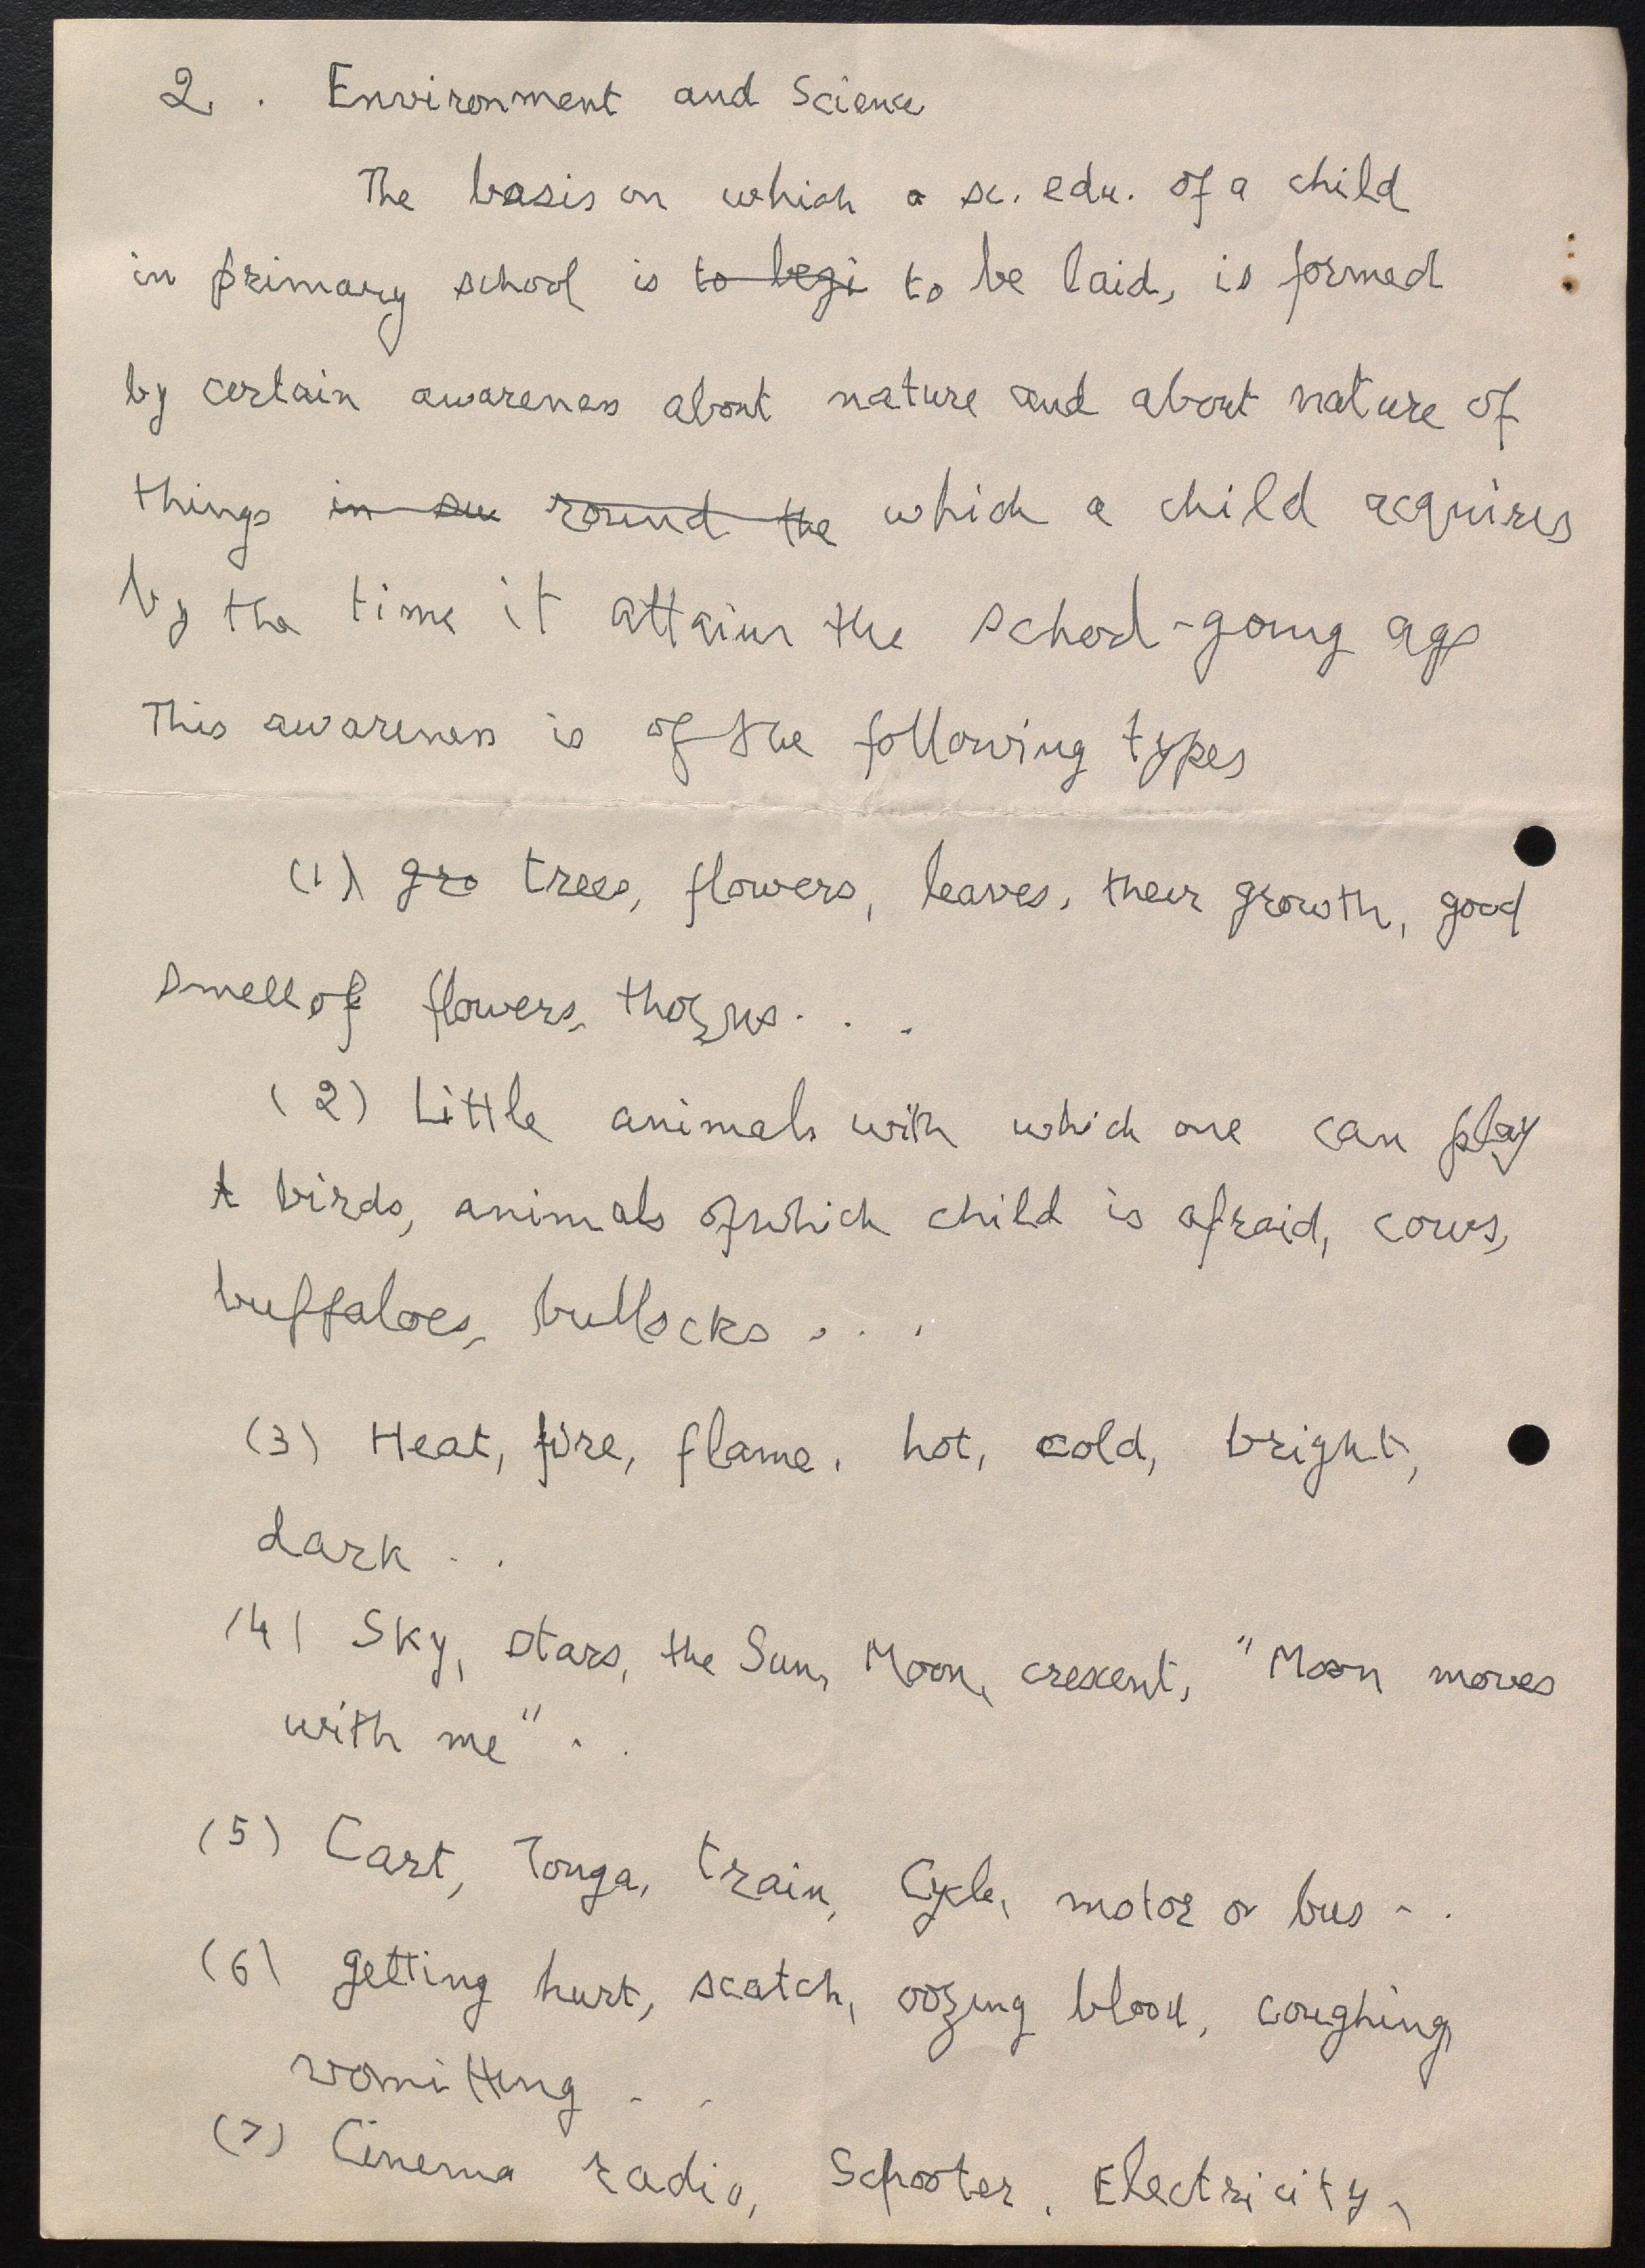 2. Environment and Science
The basis on which a sc. edu. of a child
in primary school is to begi to be laid, is formed
by certain awareness about nature and about nature of
things in su round the which a child acquires
by the time it attains the school-going age
This awareness is of the following types
(1) gro trees, flowers, leaves, their growth, good
smell of flowers, thorns...
(2) Little animals with which one can play
t birds, animals of which child is afraid, cows,
buffaloes, bullocks...
(3) Heat, fire, flame, hot, cold, bright,
dark ..
(4) Sky, stars, the Sun, Moon, crescent, "Moon moves
with me" ..
(5) Cart, Tonga, train, Cycle, motor or bus ..
(6) getting hurt, scatch, oozing blood, coughing,
vomitting ..
(7) Cinema radio, Schooter, Electricity,